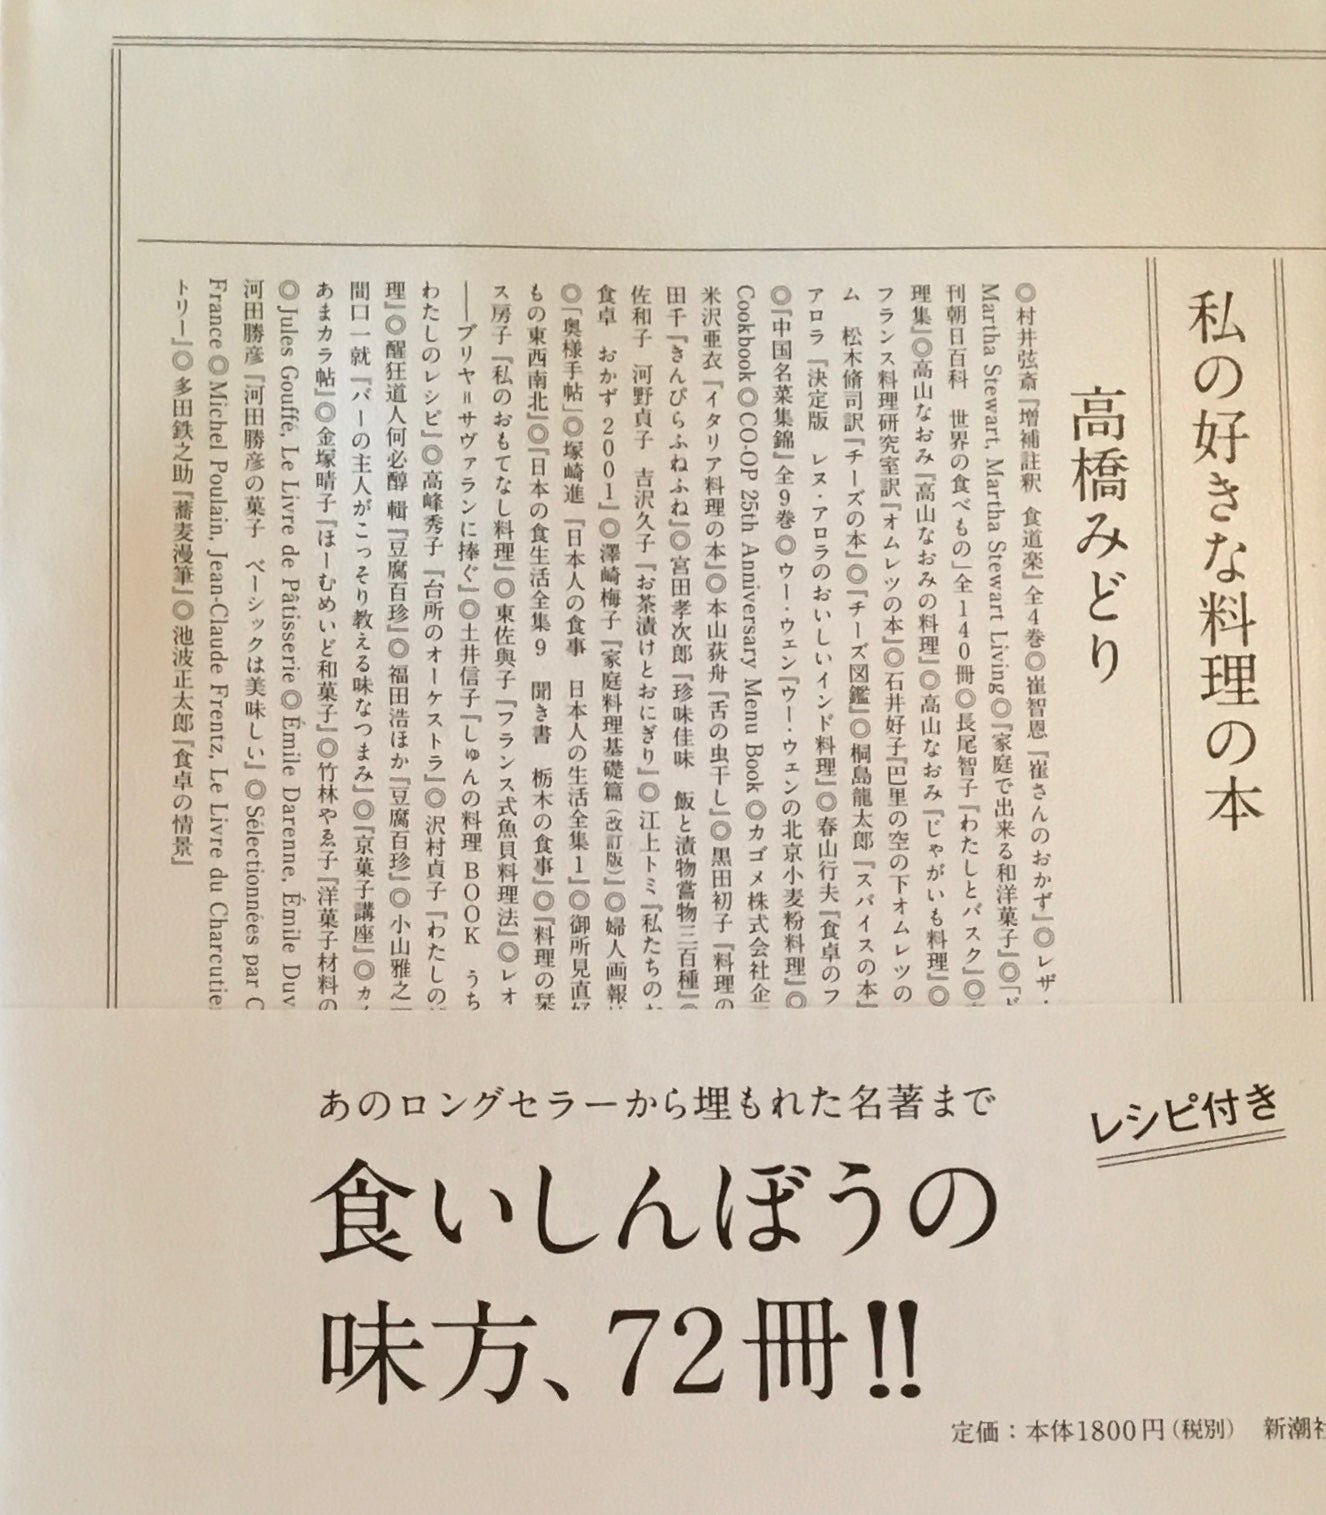 私の好きな料理の本
高橋みどり
◎村井弦斎『増補註釈 食道楽』全4巻◎崔智恩『崔さんのおかず』◎レザ・
Martha Stewart, Martha Stewart Living◎『家庭で出来る和洋菓子』◎『ど
刊朝日百科 世界の食べもの」全140冊◎長尾智子『わたしとバスク』◎
理集』◎高山なおみ『高山なおみの料理』◎高山なおみ『じゃがいも料理』◎
フランス料理研究室訳『オムレツの本』◎石井好子『巴里の空の下オムレツの
ム 松木脩司訳『チーズの本』◎『チーズ図鑑』◎桐島龍太郎『スパイスの本』
アロラ『決定版 レヌ・アロラのおいしいインド料理』◎春山行夫『食卓のフ
◎『中国名菜集錦』全9巻◎ウー・ウェン『ウー・ウェンの北京小麦粉料理』◎
Cookbook◎CO-OP 25th Anniversary Menu Book◎カゴメ株式会社企
米沢亜衣『イタリア料理の本』◎本山荻舟『舌の虫干し』◎黒田初子『料理の
田千『きんぴらふねふね』◎宮田孝次郎『珍味佳味 飯と漬物嘗物三百種』◎
佐和子 河野貞子 吉沢久子『お茶漬けとおにぎり』◎江上トミ『私たちのお
食卓 おかず2001』◎澤崎梅子『家庭料理基礎篇(改訂版)』◎婦人画報
◎「奥様手帖」◎塚崎進『日本人の食事 日本人の生活全集1』◎御所見直好
もの東西南北』◎『日本の食生活全集9 聞き書 栃木の食事』◎『料理の栞
ス房子『私のおもてなし料理』◎東佐與子『フランス式魚貝料理法』◎レオ
――ブリヤ=サヴァランに捧ぐ』◎土井信子『しゅんの料理BOOK うち
わたしのレシピ』◎高峰秀子『台所のオーケストラ』◎沢村貞子『わたしの
理』◎醒狂道人何必醇 輯『豆腐百珍』◎福田浩ほか『豆腐百珍』◎小山雅之
間口一就『バーの主人がこっそり教える味なつまみ』◎『京菓子講座』◎カ
あまカラ帖』◎金塚晴子『ほーむめいど和菓子』◎竹林やゑ子『洋菓子材料の
◎Jules Gouffé, Le Livre de Pâtisserie◎Émile Darenne, Émile Duv
河田勝彦『河田勝彦の菓子 ベーシックは美味しい』◎Sélectionnées par C
France◎Michel Poulain, Jean-Claude Frentz, Le Livre du Charcutie
トリー』◎多田鉄之助『蕎麦漫筆』◎池波正太郎『食卓の情景』
あのロングセラーから埋もれた名著まで
レシピ付き
食いしんぼうの
味方、72冊!!
定価:本体1800円(税別) 新潮社